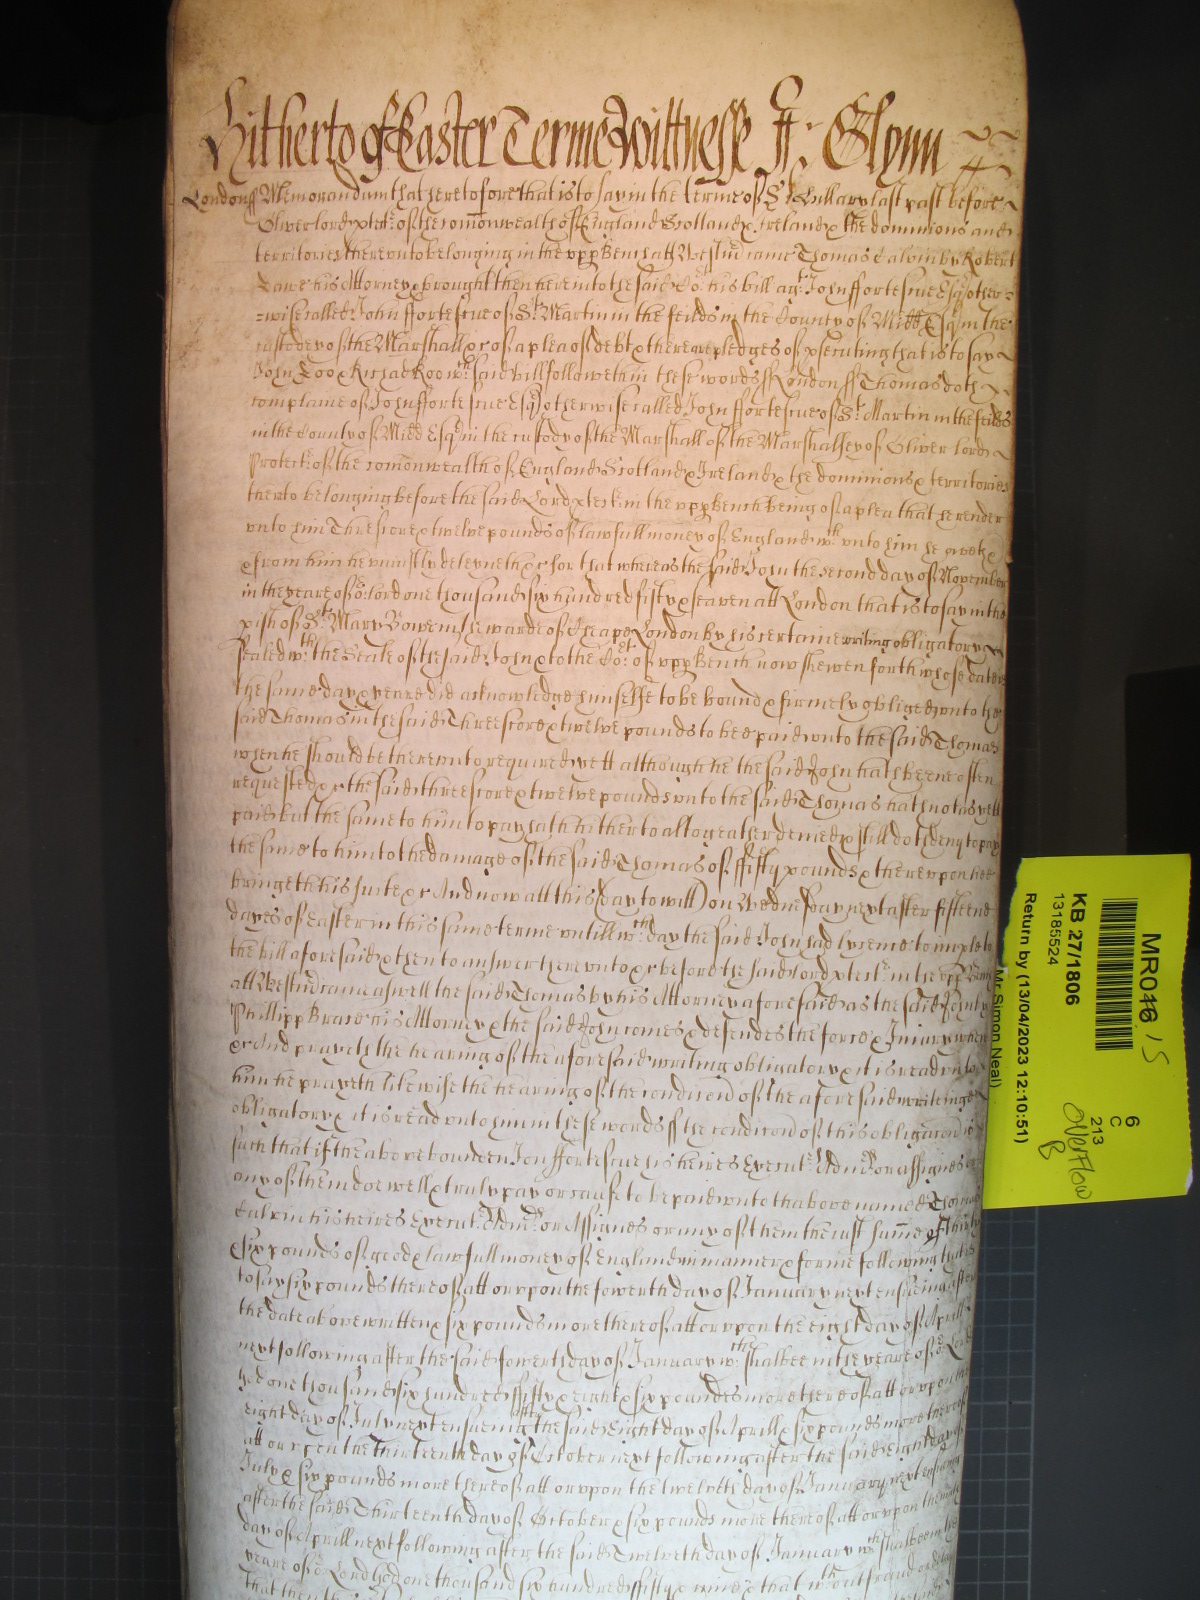 Hitherto of Easter Terme Wittnesse J: Glynn
London ss Memorandum that heretofore that is to say in the terme of St Hillary last past before
Oliver lord ptectr of the comonwealth of England Scotland & Ireland & the dominions and
territories thereunto belonging in the upp Bench att Westmr came Thomas Calvin by Robert
his Attorney & brought then here into the said Cort his bill agt John ffortescue Esqr other
=wise called John ffortescue of St Martin in the feilds in the County of Midd Esqr in the
custodey of the Marshall &c of a plea of debt & there are pledges of psecuting that is to say
John Doo & Richard Roo wch said bill followeth in these words ss London ss Thomas doth
complaine of John ffortescue Esqr otherwise called John ffortescue of St Martin in the feilds
in the County of Midd Esqr in the custody of the Marshall of the Marshalsey of Oliver lord
Protectr of the comonwealth of England Scotland & Ireland & the dominions & territories
therto belonging before the said Lord ptectr in the upp Bench being of a plea that he render
unto him Threscore & twelve pounds of lawfull money of England wch unto him he oweth &
from him he uniustly deteyneth &c for that whereas the said John the second day of November
in the yeare of or lord one thousand six hundred fifty & seaven att London that is to say in the
pish of St Mary Bowe in the warde of Cheape London by his certaine writing obligatory
sealed wth the Seale of the said John & to the Cort of upp Bench now shewen forth whose date is
the same day & yeare did acknowledge himselfe to be bound & firmely obliged unto the
said Thomas in the said Threescore & twelve pounds to bee paid unto the said Thomas
when he should be thereunto required yett although he the said John hath beene often
requested &c the said threescore & twelve pounds unto the said Thomas hath not as yett
paid but the same to him to pay hath hitherto altogeather denied & still doth deny to pay
the same to him to the damage of the said Thomas of ffifty pounds & thereupon hee
bringeth his suite &c And now att this day to witt on Wednesday next after fifteene
dayes of Easter in this same terme untill wch day the said John had lycence to imple to
the bill aforesaid & then to answer thereunto &c before the said lord ptectr in the upp Bench
att Westmr came aswell the said Thomas by his Attorney aforesaid as the said John by
Phillipp Brace his Attorney & the said John comes & defendes the force & Iniury when
&c And prayeth the hearing of the aforesaid writing obligatory & it is read unto
him he prayeth likewise the hearing of the condicon of the aforesaid writeing
obligatory & it is read unto him in these words ss the condicon of this obligacon is
such that if the above bounden Jon ffortescue his heires Executrs Admrs or assignes or
any of them doe well & truly pay or cause to be paid unto tha bove named Thomas
Calvin his heires Executrs Admrs or Assignes or any of them the iust summe of Thirty
& six pounds of good & lawfull money of England in manner & forme following that is
to say six pounds thereof att or upon the fowerth day of January next ensueing after
the date above written & six pounds more thereof att or upon the eight day of Aprill
next following after the said fowerth day of January wch shalbee in the yeare of or Lord
god one thousand six hundred ffifty & eight & six poundes more thereof att or upon the
eight day of July next ensueing after the said Eight day of Aprill & six pounds more thereof
att or upon the Thirteenth day of October next following after the said eight day of
July & six pounds more thereof att or upon the twelveth day of January next ensueing
after the said Thirteenth day of October & six pounds more thereof att or upon the
day of Aprill next following after the said Twelveth day of January wch shalbee in the
yeare of or Lord God one thousand six hundred ffifty & nine & that wthout fraud or delay
that then
MR016 15
KB 27/1806
13185524
Return by (13/04/2023 12:10:51)
Mr Simon Neal)
6
C
213
Overflow
B